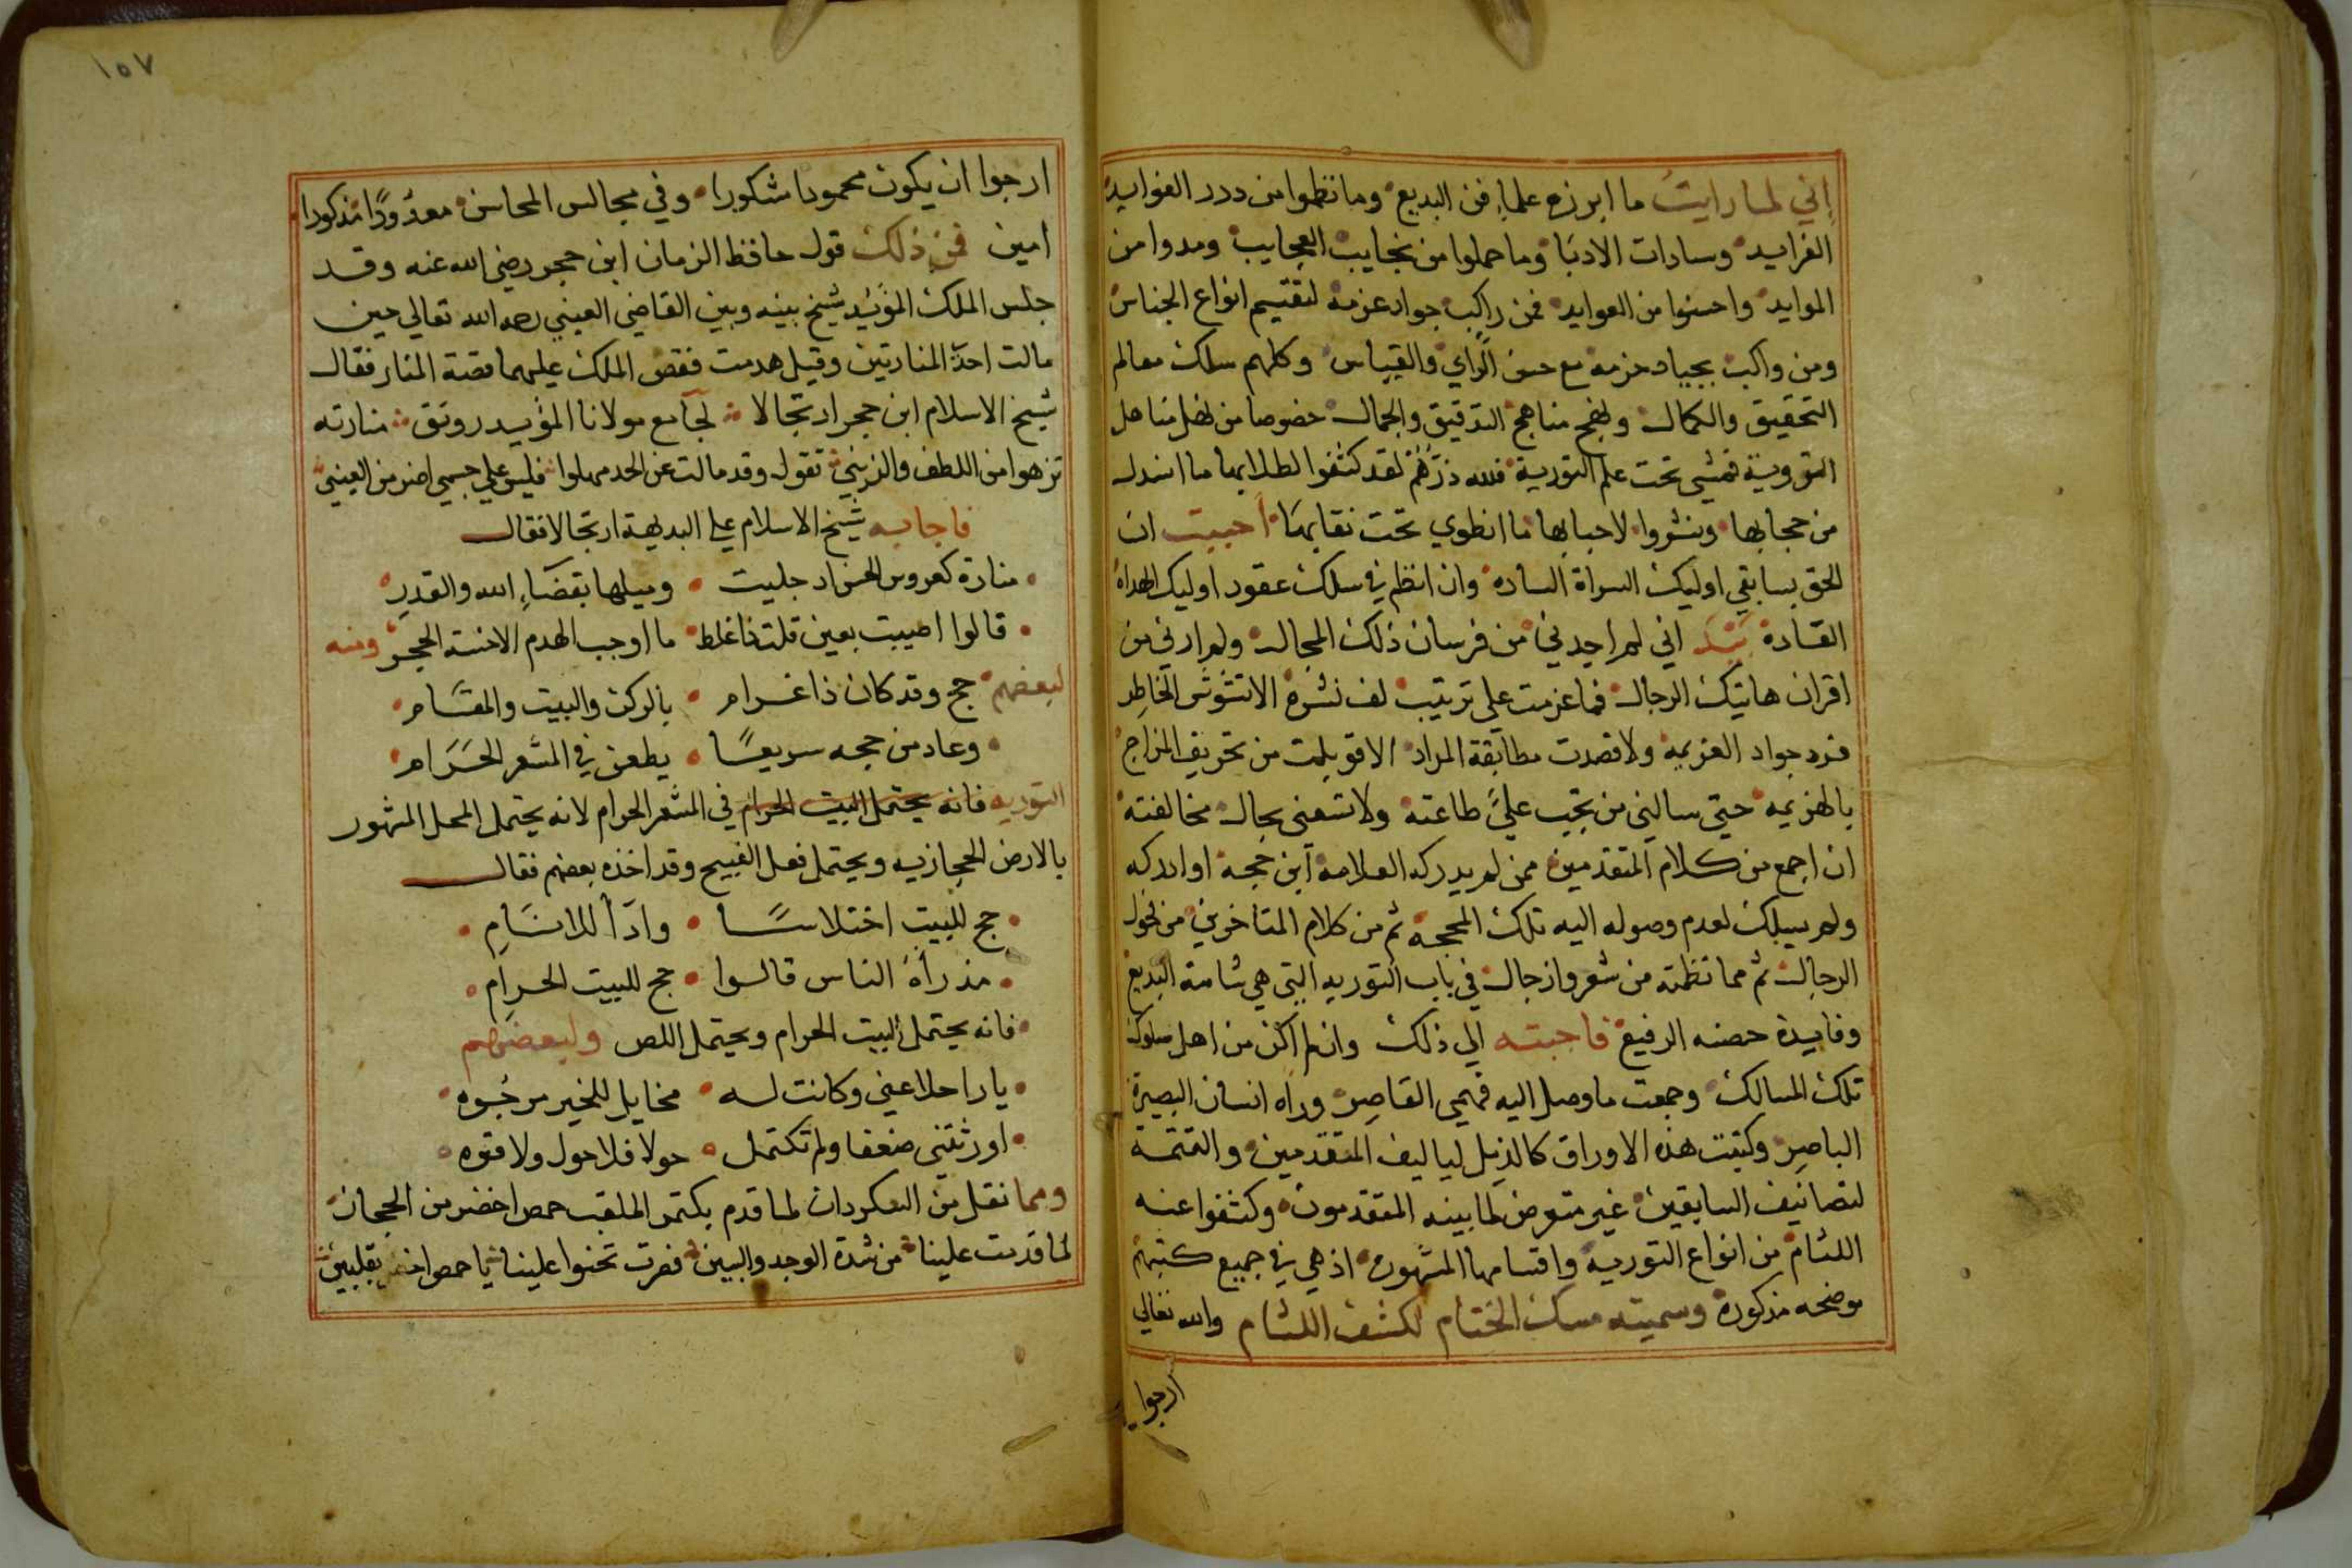 اني لما رايت ما ابرزه علماء فن البديع وما نظموا من درر الفوايد
الفرايد وسادات الادبا وما حملوا من نجايب العجايب ومدوا من
الموايد واحسنوا من العوايد فمن راكب جواد عزمه لتقسيم انواع الجناس
ومن واكب بجياد حزمه مع حسن الراي والقياس وكلهم سلك معالم
التحقيق والكمال ونهج مناهج التدقيق والجمال خصوصا من نهل مناهل
التروية فمشي تحت علم التورية فلله درهم لقد كشفوا لطلابها ما انسدل
من حجابها ونشروا لاحبابها ما انطوي تحت نقابها احببت ان
الحق بسابقي اوليك السراة الساده وان انظم في سلك عقود اوليك الهداه
القادة بيد اني لم اجدني من فرسان ذلك المجال ولم ارني من
اقران هاتيك الرجال فما عزمت علي ترتيب لف نشره الا تشوش الخاطر
فرد جواد العزيمه ولا قصدت مطابقة المراد الا قوبلت من تحريف المزاج
بالهزيمه حتي سالني من تجب علي طاعته ولا تسعني بحال مخالفته
ان اجمع من كلام المتقدمين ممن لم يدركه العلامة ابن حجة او ادركه
ولم يسلك لعدم وصوله اليه تلك المحجة ثم من كلام المتاخرين من فحول
الرجال ثم مما نظمته من شعر وازجال في باب التوريه التي هي شامة البديع
وفايدة حصنه الرفيع فاجبته الي ذلك وان لم اكن من اهل سلوك
تلك المسالك وجمعت ما وصل اليه فهمي القاصر وراه انسان البصيرة
الباصر وكتبت هذه الاوراق كالذيل لتاليف المتقدمين والتتمة
لتصانيف السابقين غير متعرض لما بينه المتقدمون وكشفوا عنه
اللثام من انواع التورية واقسامها المشهورة اذ هي في جميع كتبهم
موضحه مذكورة وسميته مسك الختام لكشف اللثام والله تعالي
ارجوا
١٥٧
ارجوا ان يكون محمودا مشكورا وفي مجالس المحاسن معدودًا مذكورا
امين فمن ذلك قول حافظ الزمان ابن حجر رضي الله عنه وقد
جلس الملك المؤيد شيخ بينه وبين القاضي العيني رحمه الله تعالي حين
مالت احدَ المنارتين وقيل هدمت فقص الملك عليهما قصة المنار فقال
شيخ الاسلام ابن حجر ارتجالا لجامع مولانا المؤيد رونق منارته
تزهوا من اللطف والزين تقول وقد مالت عن الحد مهلوا فليس علي جسمي اضر من العيني
فاجابه شيخ الاسلام علي البديهة ارتجالا فقال
منارة كعروس الحسن اد جليت وميلها بقضاءِ الله والقدر
قالوا اصيبت بعين قلت ذا غلط ما اوجب الهدم الا خسة الحجر ومنه
لبعضهم حج وقد كان ذا غرام بالركن والبيت والمقام
وعاد من حجه سريعًا يطعن في المشعر الحَرَام
التوريه فانه يحتمل البيت الحرام في المشعر الحرام لانه يحتمل المحل المشهور
بالارض الحجازيه ويحتمل فعل القبيح وقد اخذه بعضهم فقال
حج للبيت اختلاسًا واذًا للانام
مذ رأهُ الناس قالوا حج للبيت الحرام
فانه يحتمل البيت الحرام ويحتمل اللص ولبعضهم
يا راحلا عني وكانت له مخايل للخير مرجُوه
اورثتني ضعفا ولم تكتمل حولا فلا حول ولا قوه
ومما نقل من السكردان لما قدم بكتمر الملقب حمص اخضر من الحجاز
لما قدمت علينا من شدة الوجد والبين فصرت تحنوا علينا يا حمص اخضر بقلبين